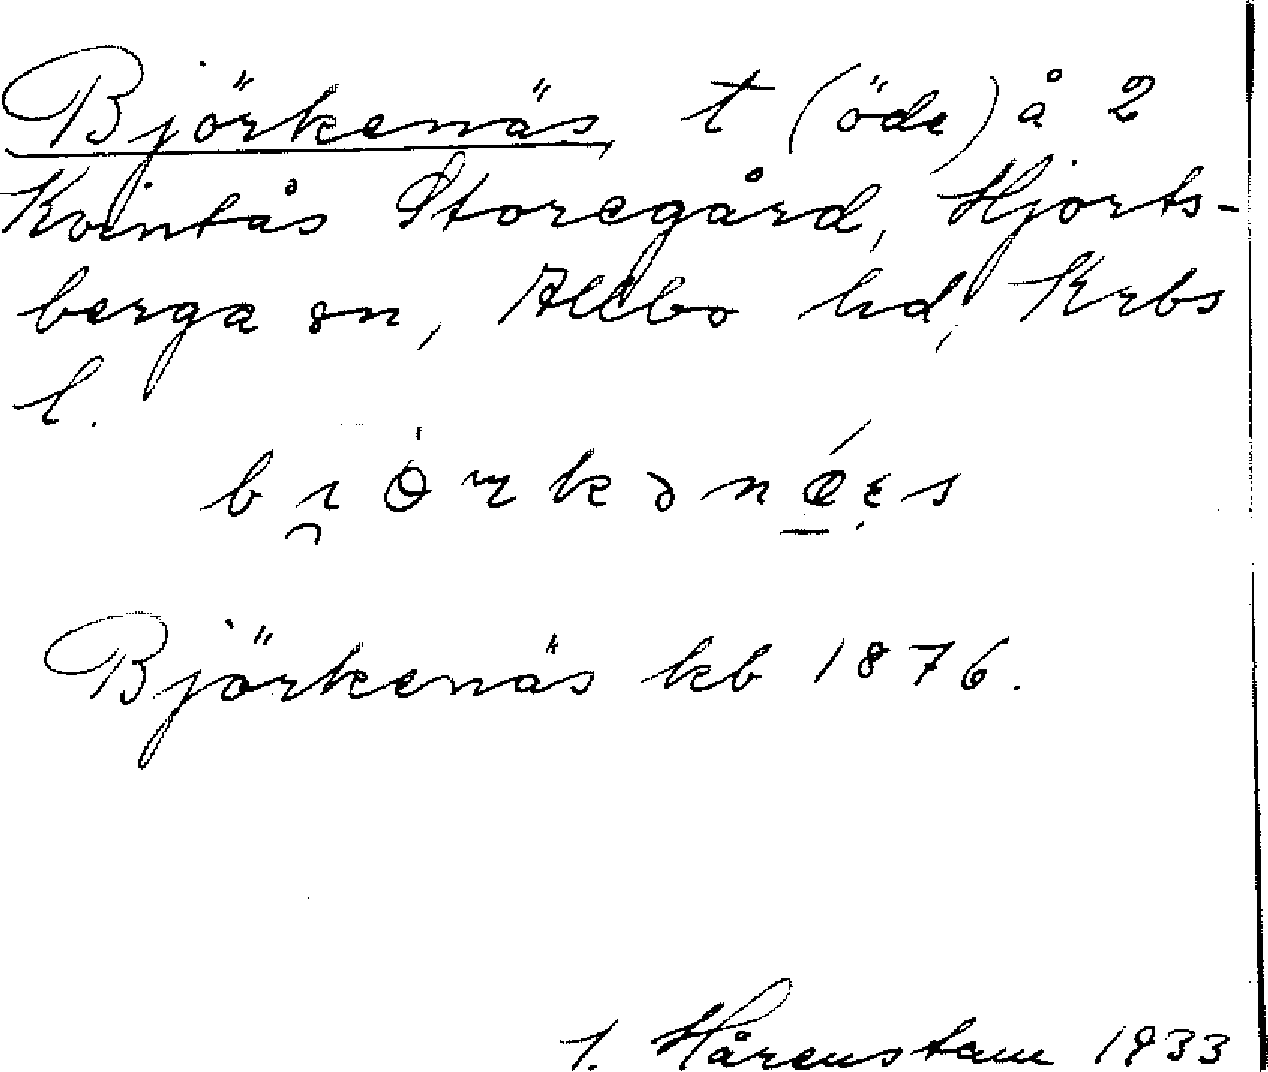 Björkenäs, t (öde) å 2
Kvintås Storegård, Hjorts-
berga sn, Allbo hd, Krbs
l.
Björkenäs kb 1876.
I. Hårenstam 1933